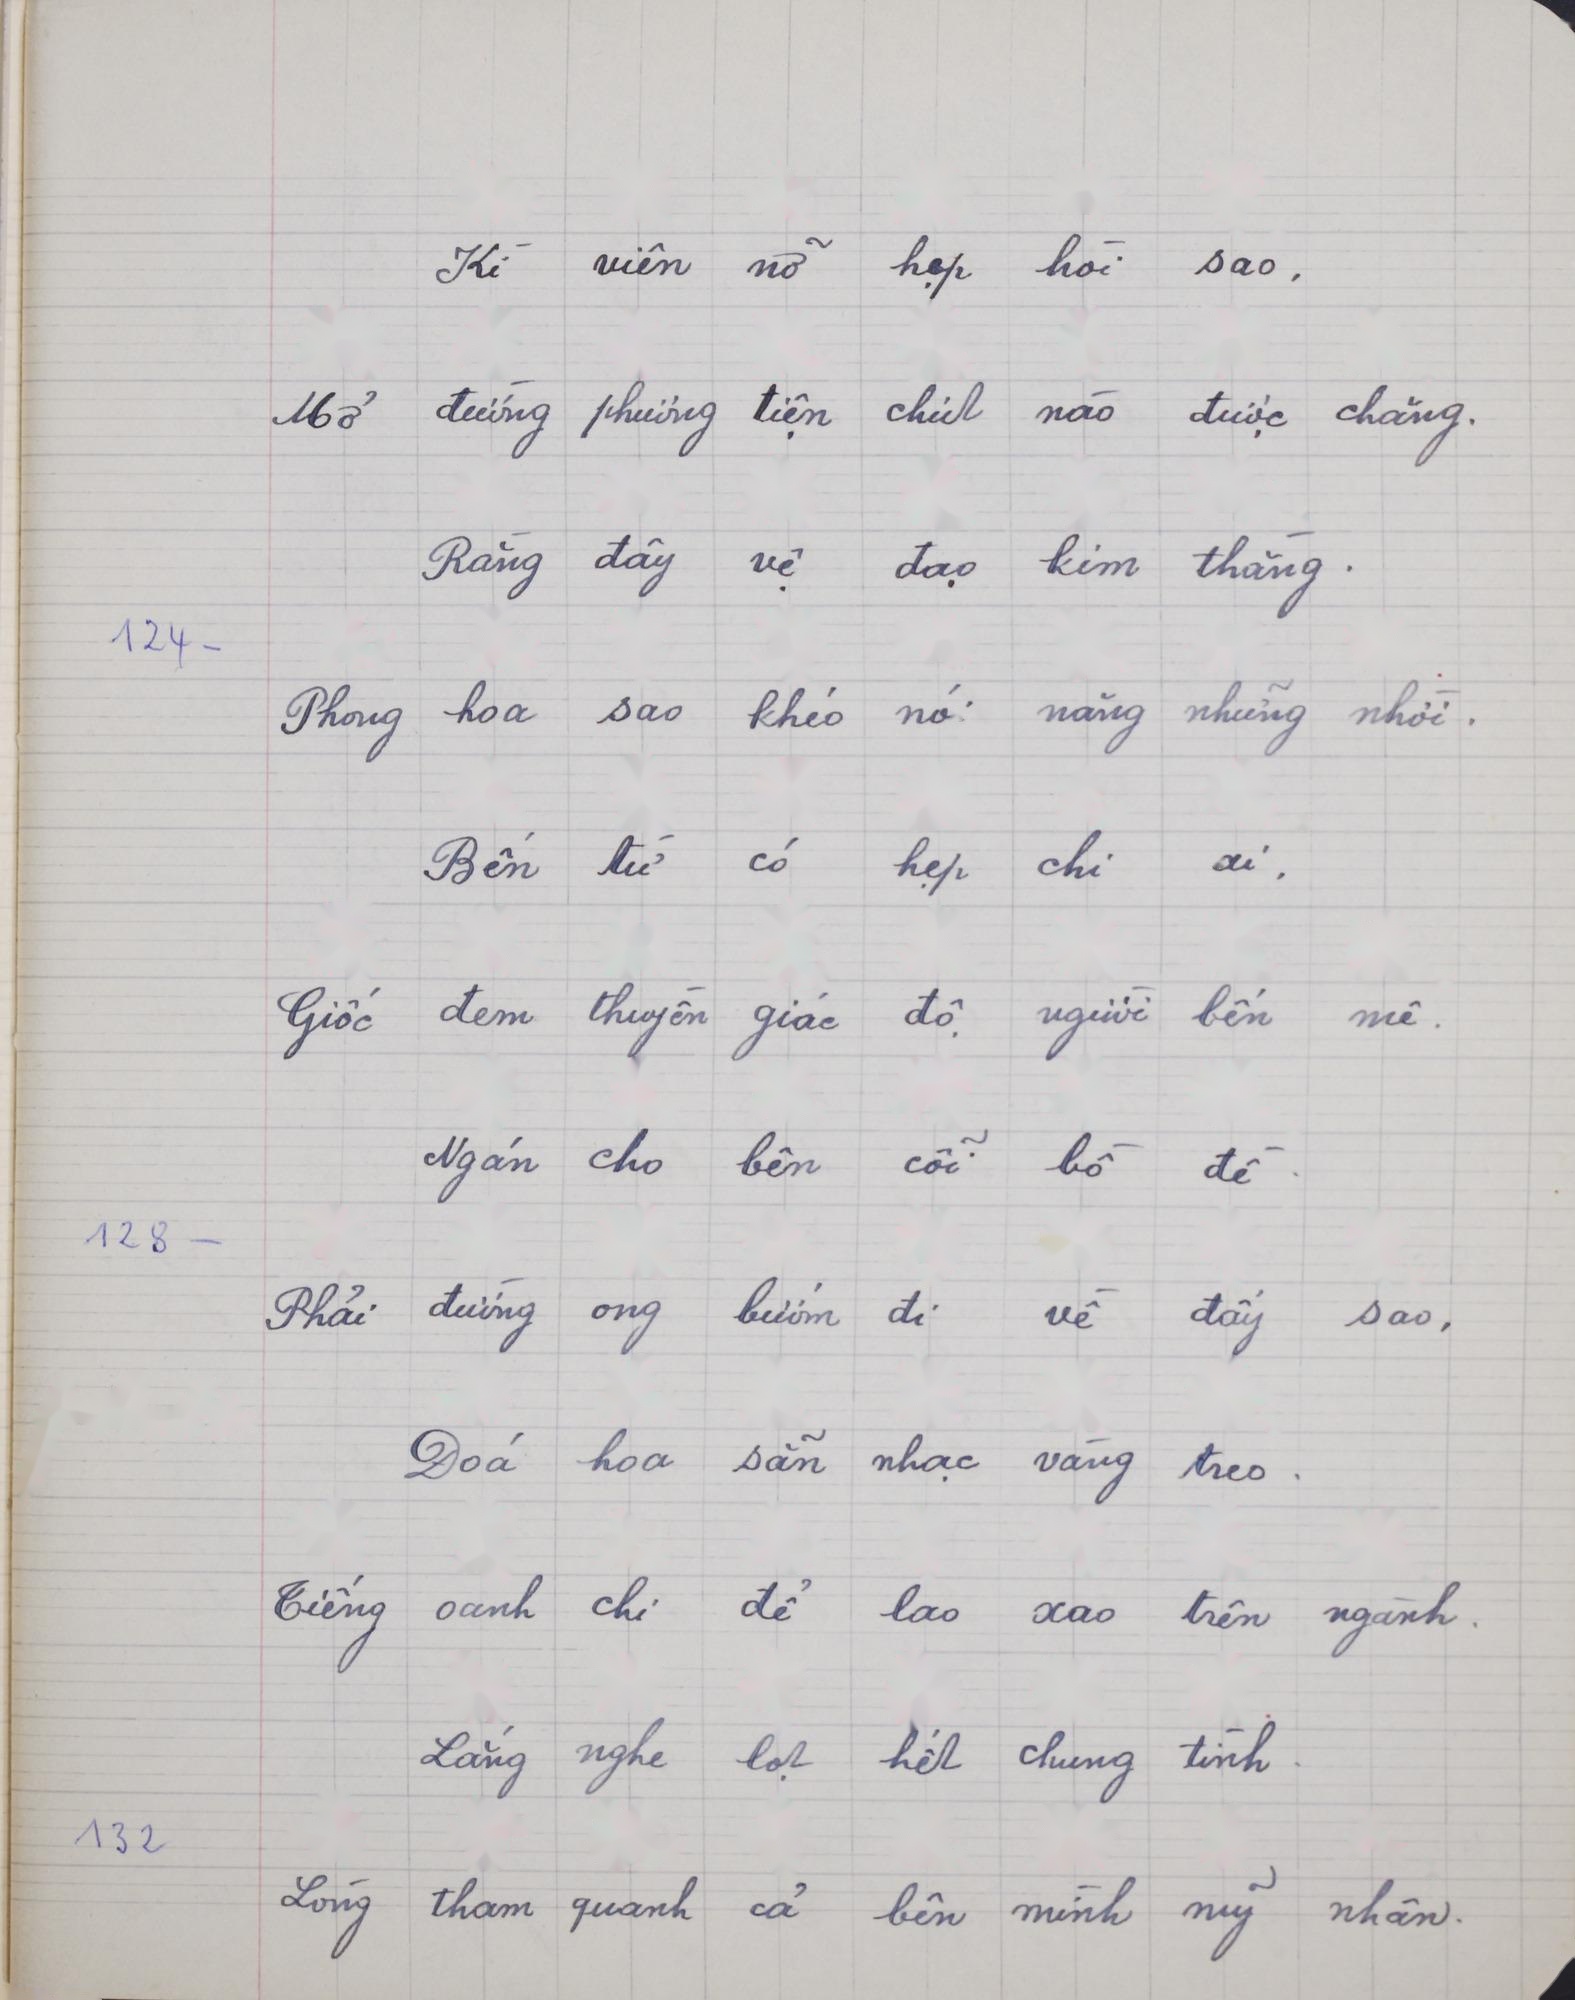 Kì viên nỡ hẹp hòi sao,
Mở đường phương tiện chút nào được chăng.
Rằng đây vệ đạo kim thằng.
124-
Phong hoa sao khéo nói năng những nhời.
Bến từ có hẹp chi ai,
Giốc đem thuyền giác độ người bến mê.
Ngán cho bên cỗi bồ đề.
128-
Phải đường ong bướm đi về đấy sao,
Đoá hoa sẵn nhạc vàng treo.
Tiếng oanh chi để lao xao trên ngành.
Lắng nghe lọt hết chung tình.
132
Lòng tham quanh cả bên mình mỹ nhân.